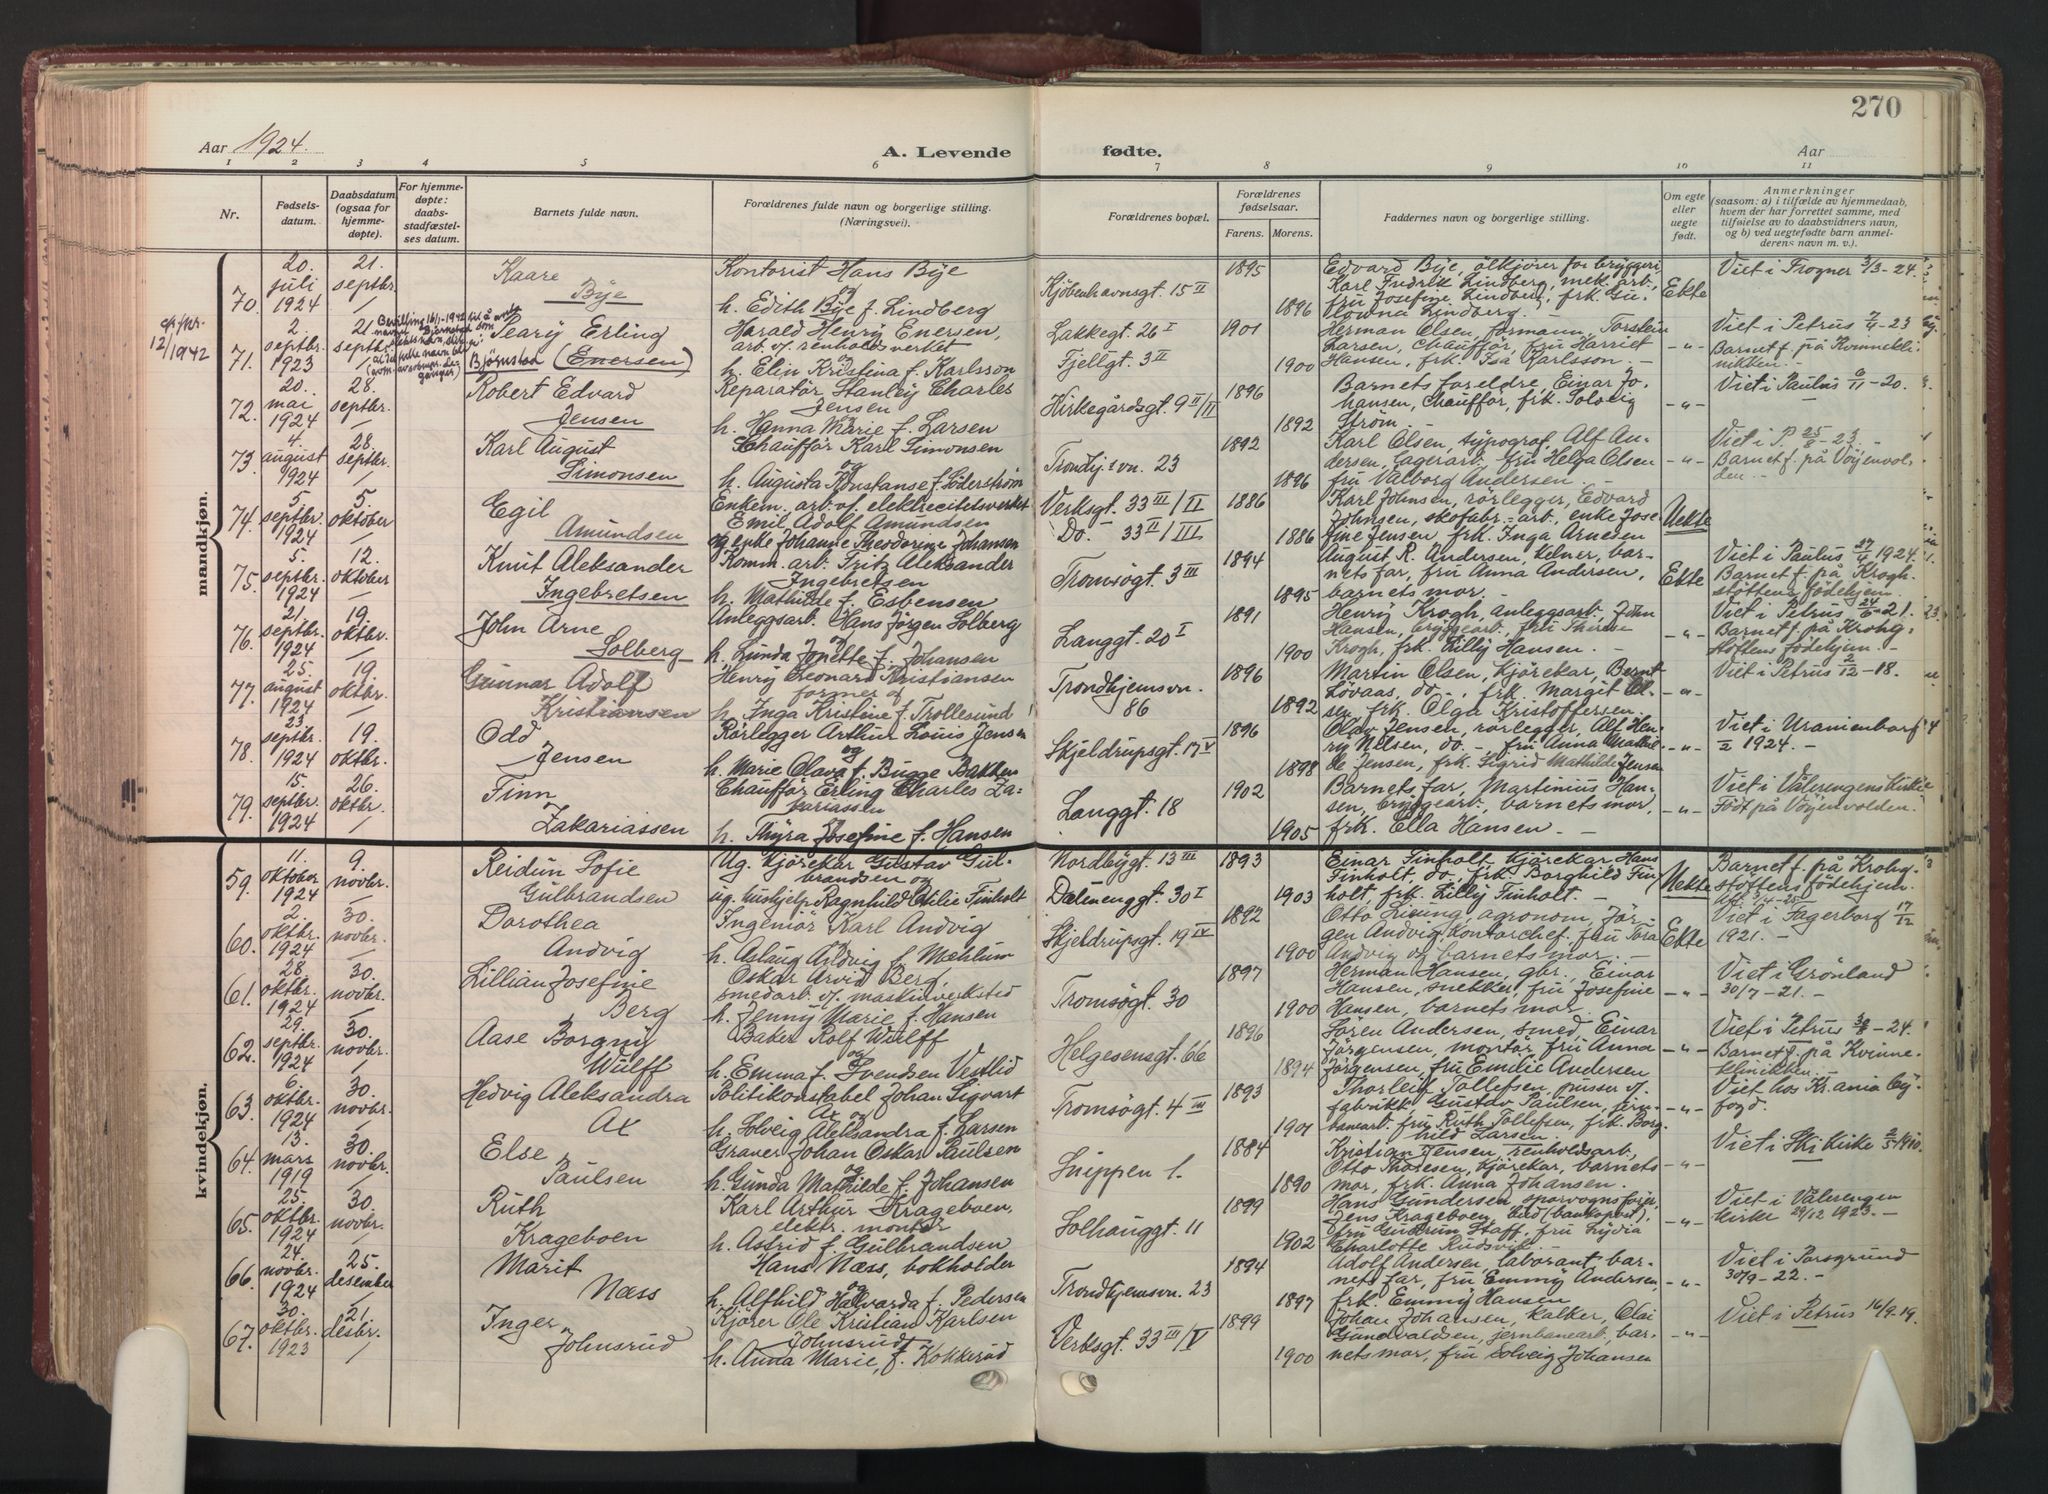 270
Aar 1924. A. Levende fødte. Aar
1 2 3 4 5 6 7 8 9 10 11
Nr. Fødselsdatum. Daabsdatum (ogsaa for hjemmedøpte). For hjemmedøpte: daabsstadfæstelses datum. Barnets fulde navn. Forældrenes fulde navn og borgerlige stilling. (Næringsvei). Forældrenes bopæl. Forældrenes fødselsaar. Farens. Morens. Faddernes navn og borgerlige stilling. Om egte eller uegte født. Anmerkninger (saasom: a) i tilfælde av hjemmedaab, hvem der har forrettet samme, med tilføielse av to daabsvidners navn, og b) ved uegtefødte barn anmelderens navn m. v.).
mandkjøn.
70. 20. juli 1924 21. septbr. Kaare Bye Kontorist Hans Bye og h. Edith Bye f. Lindberg Kjøbenhavnsgt. 15 II 1895 1896 Edvard Bye, ølkjører for bryggeri, Karl Fredrik Lindberg, mek. arb., fru Josefine Lindberg, frk. Lindberg. Ekte Viet i Frogner 3/3-24.
12/1942
71. 2. septbr. 1923 21. septbr. Peary Erling Bjørnstad (Enersen) Harald Henry Enersen, arb. v. renholdsverket og h. Elin Kristina f. Karlsson Lakkegt. 26 I Fjellgt. 3 II 1901 1900 Herman Olsen, formann, Torstein Larsen, chauffør, fru Harriet Hansen, frk. Isa Karlsson. -"- Viet i Petrus 7/4-23 Barnet f. på Kvinneklinikken.
72. 20. mai 1924 28. septbr. Robert Edvard Jensen Reparatør Stanley Charles Jensen h. Hanna Marie f. Larsen Kirkegårdsgt. 9 II/II 1896 1892 Barnets foreldre, Einar Johansen, chauffør, frk. Solveig Strøm. -"- Viet i Paulus 6/11-20.
73. 4. august 1924 28. septbr. Karl August Simonsen Chauffør Karl Simonsen og h. Augusta Konstanse f. Söderström Trondhj.svn. 23 1892 1896 Karl Olsen, typograf, Alf Andersen, lagerarb., fru Helga Olsen fru Valborg Andersen. -"- Viet i P. 25/8-23. Barnet f. på Vøyenvolden.
74. 5. septbr. 1924 5. oktober Egil Amundsen Enkem. arb. v. elektrecitetsverket Emil Adolf Amundsen og enke Johanne Theodorine Johansen Verksgt. 33 III/II Do. 33 II/III 1886 1886 Karl Johnsen, rørlegger, Edvard Johnsen, skofabr.-arb., enke Josefine Jensen, frk. Inga Arnesen Uekte
75. 5. septbr. 1924 12. oktober Knut Aleksander Ingebretsen Komm. arb. Fritz Aleksander Ingebretsen h. Mathilde f. Esbensen Tromsøgt. 3 III 1894 1895 August R. Andersen, kelner, barnets far, fru Anna Andersen, barnets mor. Ekte Viet i Paulus 27/4 1924. Barnet f. på Kroghstøttens fødehjem.
76. 21. septbr. 1924 19. oktbr. John Arne Solberg Anleggsarb. Hans Jørgen Solberg og h. Lunda Jonette f. Johansen Langgt. 20 I 1891 1900 Henry Krogh, anleggsarb., John Hansen, bryggearb., fru Therese Krogh, frk. Lilly Hansen. -"- Viet i Petrus 24/6-21. Barnet f. på Krohgstøttens fødehjem.
77. 25. august 1924 19. oktbr. Gunnar Adolf Kristiansen Henry Leonard Kristiansen former og h. Inga Kristine f. Trollesund Trondhjemsvn. 86 1896 1892 Martin Olsen, kjørekar, Bernt Løvaas, do., frk. Margit Olsen, frk. Olga Kristoffersen. -"- Viet i Petrus 2/12-18.
78. 23. septbr. 1924 19. oktbr. Odd Jensen Rørlegger Arthur Louis Jensen og h. Marie Olava f. Bugge Bakken Skjeldrupsgt. 17 V 1896 1898 Olav Jensen, rørlegger, Alf Henry Nilsen, do., fru Anna Mathilde Jensen, frk. Sigrid Mathilde Jensen -"- Viet i Uranienborg 4/2 1924.
79. 15. septbr. 1924 26. oktbr. Finn Zakariassen Chauffør Erling Charles Zakariassen og h. Thyra Josefine f. Hansen Langgt. 18 1902 1905 Barnets far, Martinius Hansen, bryggearb., barnets mor, frk. Ella Hansen. -"- Viet i Vålerengens kirke Født på Vøyenvolden.
kvindekjøn.
59. 11. oktober 1924 9. novbr. Reidun Sofie Gulbrandsen Ug. kjørekar Gustav Gulbrandsen og ug. hushjelp Ragnhild Otilie Finholt Nordbygt. 13 III Dalenenggt. 30 I 1893 1903 Einar Finholt, kjørekar Hans Finholt, do., frk. Borghild Finholt, frk. Lilly Finholt. Uekte Barnet f. på Krohgstøttens fødehjem.
60. 2. oktbr. 1924 30. novbr. Dorothea Andvig Ingeniør Karl Andvig og h. Aslaug Andvig f. Mæhlum Skjeldrupsgt. 19 IV 1892 1900 Otto Liung, agronom, Jørgen Andvig, kontorchef, fru Tora Andvig og barnets mor. Ekte Viet i Fagerborg 17/12 1921.
61. 28. oktbr. 1924 30. novbr. Lillian Josefine Berg Oskar Arvid Berg, smedarb. v. maskinverksted h. Jenny Marie f. Hansen Tromsøgt. 30 1897 1900 Herman Hansen, gbr., Einar Hansen, snekker, fru Josefine Hansen, barnets mor. -"- Viet i Grønland 30/7-21.
62. 29. septbr. 1924 30. novbr. Aase Borgny Wulff Baker Rolf Wulff og h. Emma f. Svendsen Vestlid Helgesensgt. 66 1896 1894 Søren Andersen, smed, Einar Jørgensen, montør, fru Anna Jørgensen, fru Emilie Andersen -"- Viet i Petrus 30/8-24. Barnet f. på Kvinneklinikken.
63. 6. oktbr. 1924 30. novbr. Hedvig Aleksandra Ax Politikonstabel Johan Sigvart Ax og h. Solveig Aleksandra f. Larsen Tromsøgt. 4 III 1893 1901 Thorleif Tollefsen, pusser v. fabrikk, Gustav Paulsen, jernbanearb. fru Ruth Tollefsen, frk. Borghild Larsen. -"- Viet hos Kr.ania byfogd.
64. 13. mars 1919 30. novbr. Else Paulsen Graver Johan Oskar Paulsen og h. Gunda Mathilde f. Johansen Snippen 1. 1884 1890 Kristian Jensen, renholdsarb., Otto Thoresen, kjørekar, barnets mor, frk. Anna Johansen. -"- Viet i Ski kirke 2/5 1910.
65. 25. oktbr. 1924 30. novbr. Ruth Krageboen Karl Arthur Krageboen, elektr. montør h. Astrid f. Gulbrandsen Solhauggt. 11 1899 1902 Hans Gundersen, sporvognsfører, Jens Krageboen, bud (bankopost), fru Gudrun Staff, fru Lydia Charlotte Rudsvik. -"- Viet i Vålerengen kirke 29/12 1923.
66. 24. novbr. 1924 25. desember Marit Næss Hans Næss, bokholder og h. Alfhild Halvarda f. Pedersen Trondhjemsvn. 23 1894 1897 Adolf Andersen, laborant, barnets far, fru Emmy Andersen, frk. Emmy Hansen -"- Viet i Porsgrund 30/9-22.
67. 30. oktbr. 1923 21. desbr. Inger Johnsrud Kjører Ole Kristian Karlsen Johnsrud h. Anna Marie, f. Kokkerud Verksgt. 33 III/V 1899 1900 Johan Johansen, kalker, Olai Gundvaldsen, jernbanearb., barnets mor, fru Solveig Johansen -"- Viet i Petrus 16/9-19.